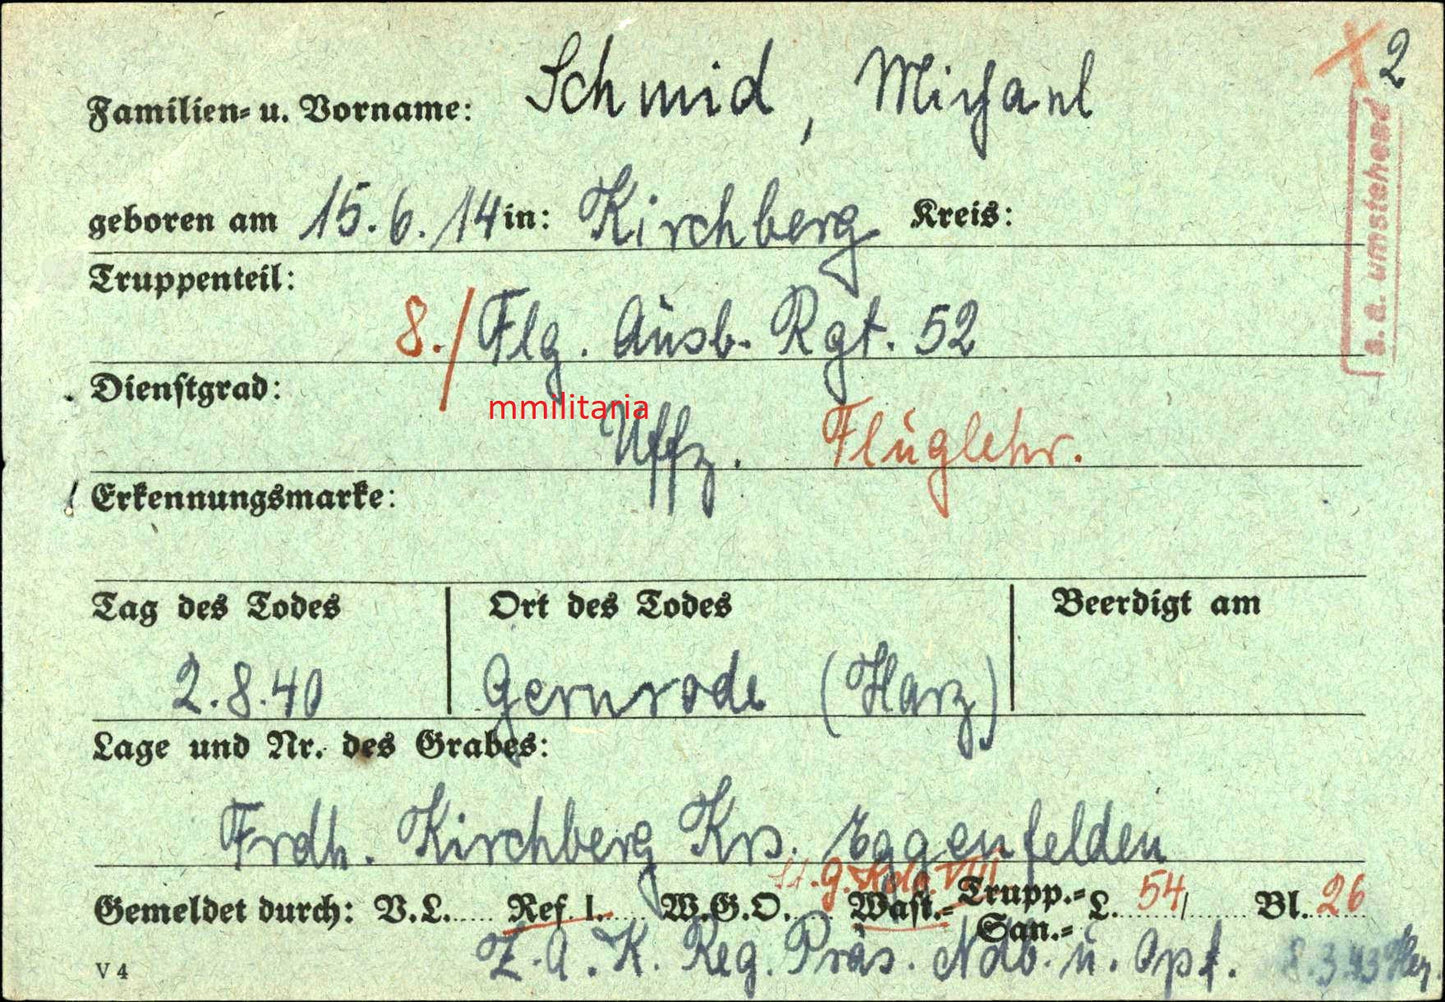 2
Familien- u. Vorname: Schmid, Michael
s. a. umstehend
geboren am 15.6.14 in: Kirchberg Kreis:
Truppenteil:
8./Flg. Ausb. Rgt. 52
Dienstgrad:
mmilitaria
Uffz. Fluglehr.
Erkennungsmarke:
Tag des Todes Ort des Todes Beerdigt am
2.8.40 Gernrode (Harz)
Lage und Nr. des Grabes:
Frdh. Kirchberg Krs. Eggenfelden
VII
Gemeldet durch: V.L...... Ref I....... W.G.O..... Wast.- Trupp.- San.- L. 54/ Bl. 26
Z.A.K. Reg. Präs. Ndb. u. Opf. 8.3.43
V 4